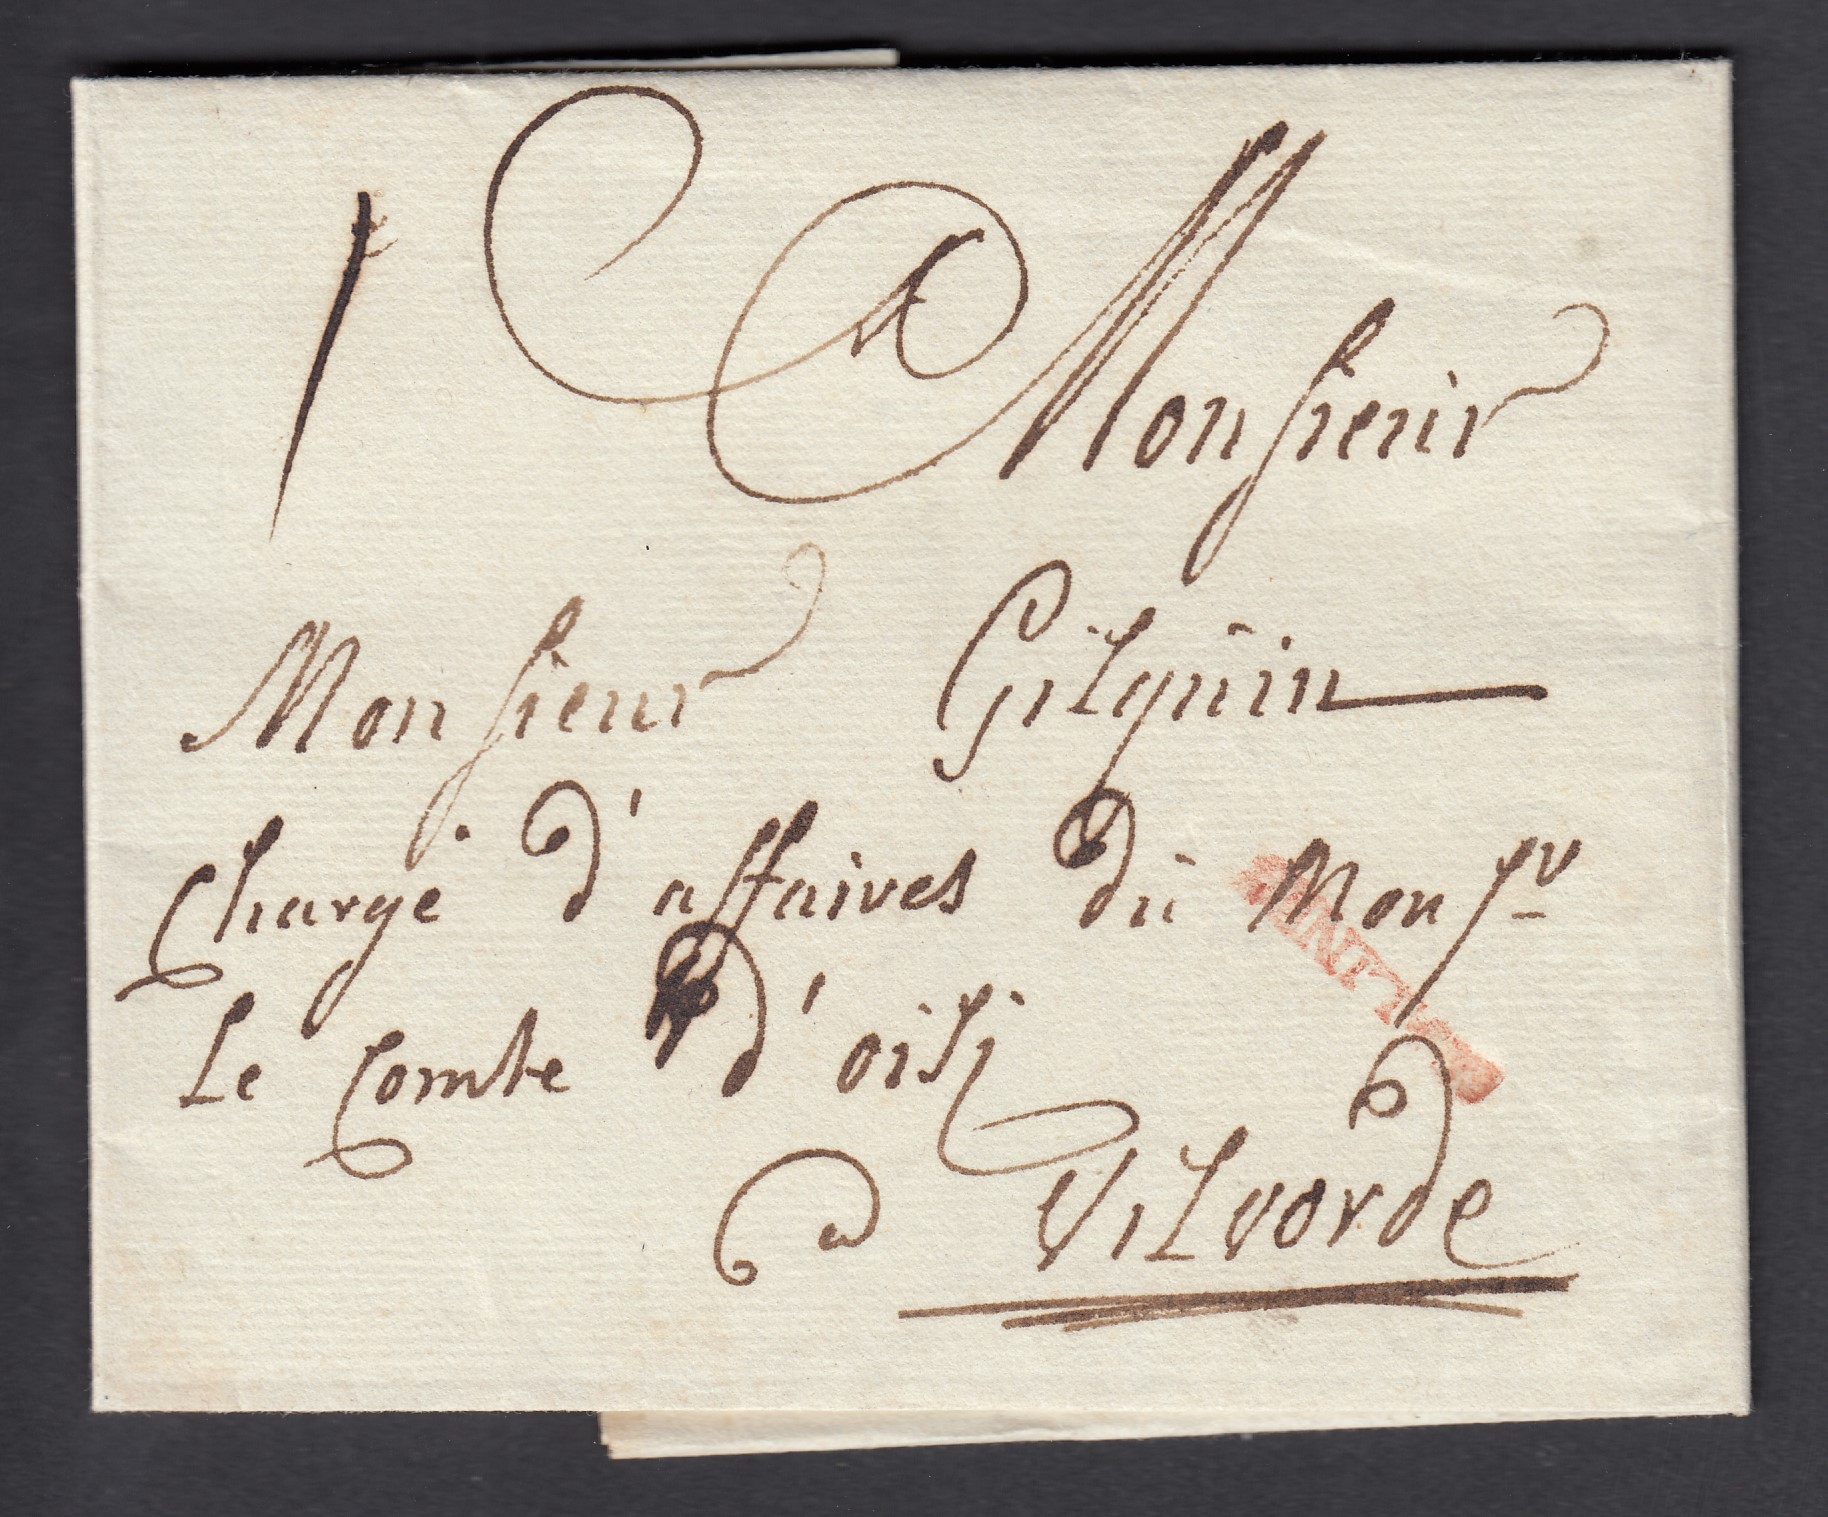 A Monsieur
Monsieur Gilquin
Chargé d'affaires du Monsr
Le Comte d'oisi
a Vilvorde